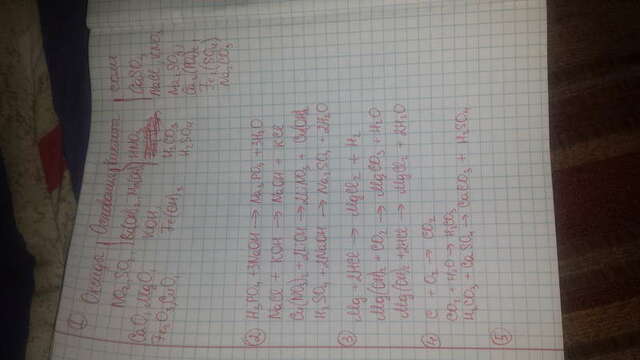 1 Оксиды | Основания | Кислота | соли
NO2, SO3, | Ba(OH)2, | HNO3 | CaSO4
CaO, MgO, | KOH, | NaCl, KNO3
Fe2O3, CuO, | Fe(OH)3 | H2CO3 | Na2SO4
H2SO4 | Ca3(PO4)2
Na2CO3
2 H3PO4 + 3NaOH → Na3PO4 + 3H2O
NaCl + KOH → NaOH + KCl
Cu(NO3)2 + 2LiOH → 2LiNO3 + Cu(OH)2
H2SO4 + 2NaOH → Na2SO4 + 2H2O
3 Mg + 2HCl → MgCl2 + H2
Mg(OH)2 + CO2 → MgCO3 + H2O
Mg(OH)2 + 2HCl → MgCl2 + 2H2O
4 C + O2 → CO2
CO2 + H2O → H2CO3
H2CO3 + CaSO4 → CaCO3 + H2SO4
5